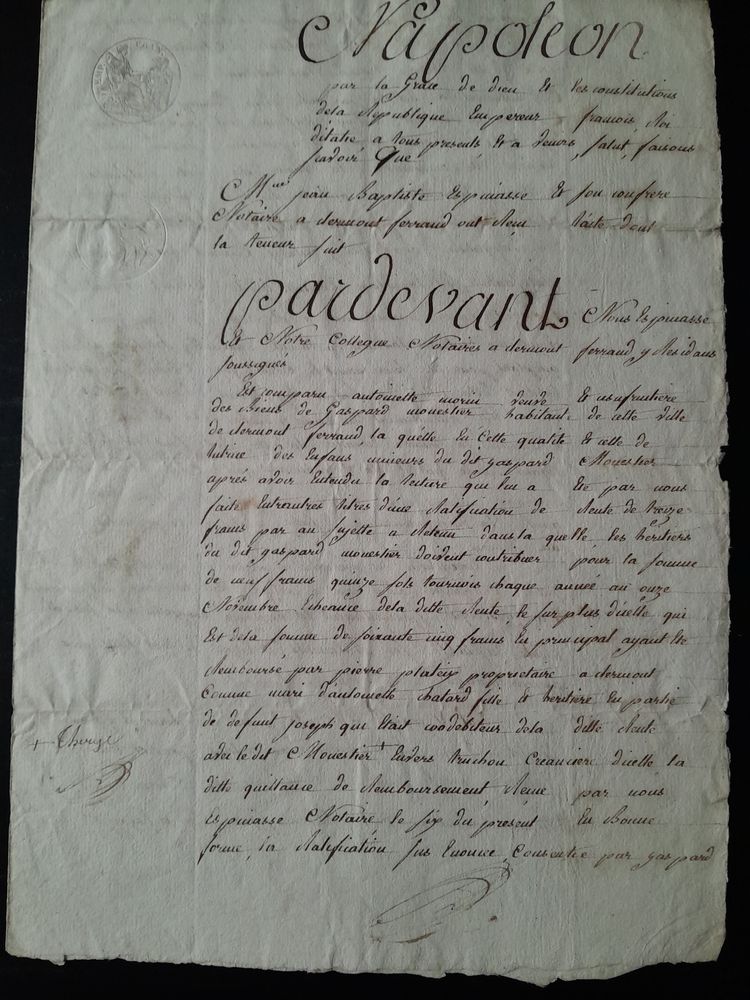 Napoleon
par la Grace de dieu Et les constitutions
dela Republique Empereur francois, Roi
ditalie a tous presents Et a venirs, salut, faisons
savoir Que
Mtre jean Baptiste Espinasse Et son confrere
Notaire a clermont ferrand ont Recu lacte dont
la teneur suit
pardevant Nous Espinasse
Et Notre Collegue Notaires a clermont ferrand y Residans
soussignés
Est comparu antoinette morin veuve Et usufruitiere
des Biens de Gaspard monestier habitant de cette ville
de clermont ferrand la quelle En Cette qualité Et celle de
tutrice des Enfans mineurs du dit gaspard Monestier
aprés avoir Entendu la lecture qui lui a Eté par nous
faite Entrautres titres d'une Ratification de Rente de treize
francs par an sujette a Retenu dans la quelle les heritiers
du dit gaspard monestier doivent contribuer pour la somme
de neuf francs quinze sols tournois chaque année au onze
Novembre Echeance dela ditte Rente, le surplus d'icelle qui
Est dela somme de soixante cinq francs En principal ayant Eté
Remboursé par pierre proprietaire a clermont
comme mari d'antoinette chatard fille Et heritiere En partie
de defunt joseph qui Etait codebiteur dela ditte Rente
avec le dit Monestier + Envers truchon Creanciere d'icelle la
+ Therese
ditte quittance de Remboursement Recue par nous
Espinasse Notaire le six du present En Bonne
forme, la Ratification sus Enoncée, Consentie par gaspard